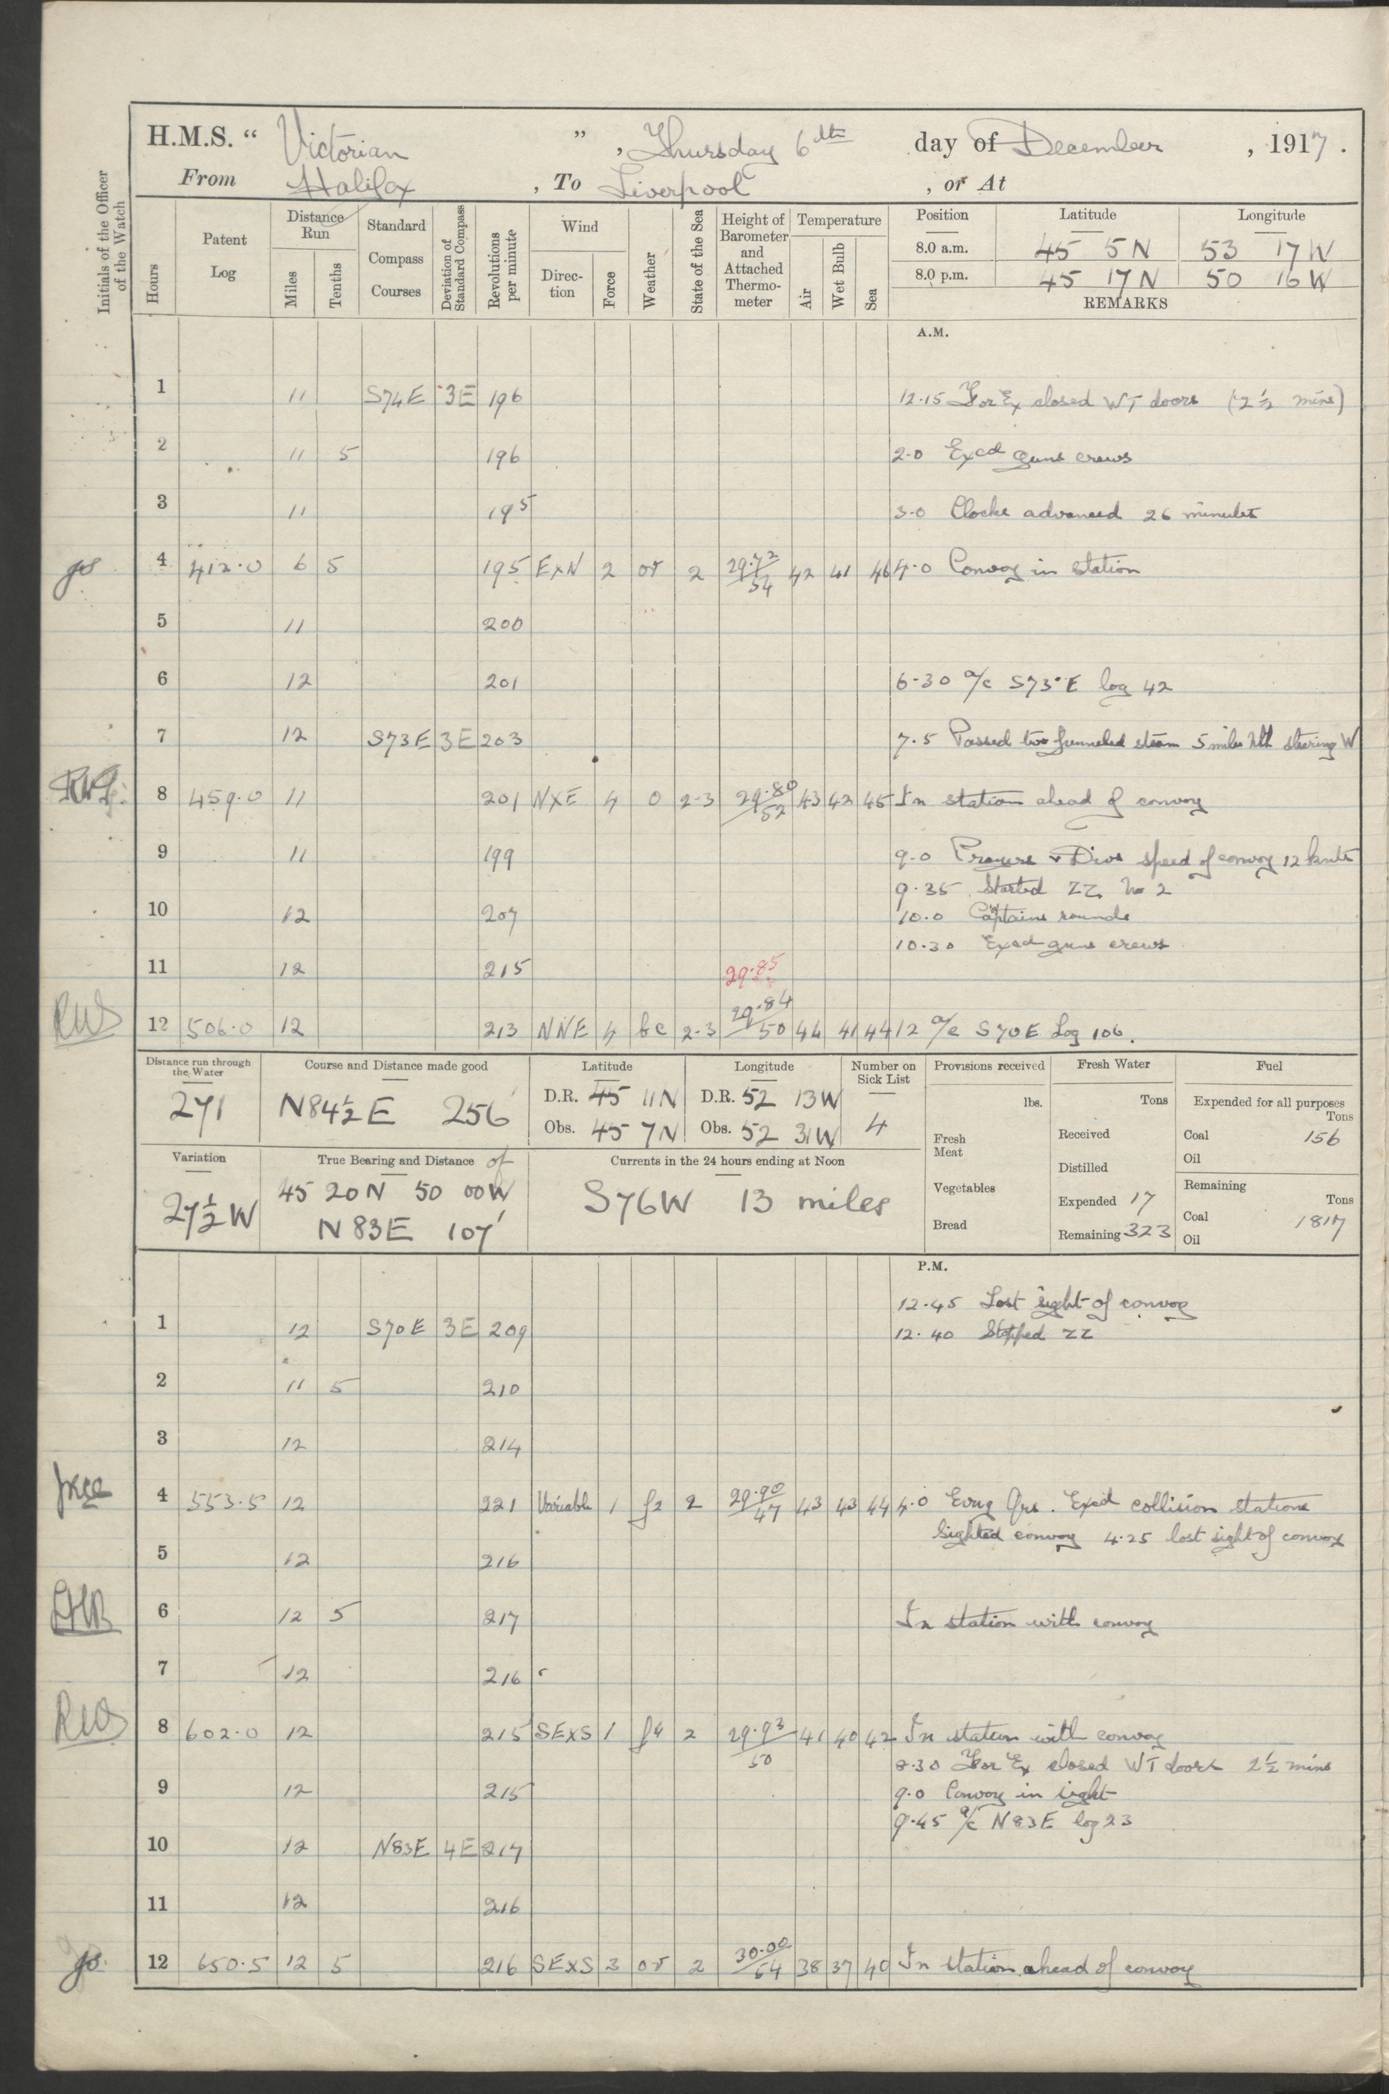 H.M.S. “ Victorian ” , Thursday 6th day of December , 1917 .
From Halifax , To Liverpool , or At
Initials of the Officer of the Watch
Hours
Patent Log
Distance Run
Miles
Tenths
Standard Compass Courses
Deviation of Standard Compass
Revolutions per minute
Wind
Direc-tion
Force
Weather
State of the Sea
Height of Barometer and Attached Thermo-meter
Temperature
Air
Wet Bulb
Sea
Position Latitude Longitude
8.0 a.m. 45 5 N 53 17 W
8.0 p.m. 45 17 N 50 16 W
REMARKS
A.M.
1 11 S74E 3E 196 12.15 For Ex closed WT doors (2½ mins)
2 11 5 196 2.0 Excd guns crews
3 11 195 3.0 Clocks advanced 26 minutes
4 412.0 6 5 195 ExN 2 or 2 29.72/54 42 41 46 4.0 Convoy in station
5 11 200
6 12 201 6.30 a/c S73°E log 42
7 12 S73E 3E 203 7.5 Passed two funneled steam 5 miles Nth steering W
8 459.0 11 201 NxE 4 o 2-3 29.80/52 43 42 45 In station ahead of convoy
9 11 199 9.0 Prayers & Divs speed of convoy 12 knts
9.35 Started ZZ No 2
10 12 207 10.0 Captains rounds
10.30 Excd guns crews
11 12 215 29.85
RWS 12 506.0 12 213 NNE 4 bc 2-3 29.84/50 44 41 44 12 a/c S70E Log 106.
Distance run through the Water
271
Course and Distance made good
N84½E 256'
Latitude
D.R. 45 11N
Obs. 45 7N
Longitude
D.R. 52 13W
Obs. 52 31W
Number on Sick List
4
Provisions received
lbs.
Fresh Meat
Vegetables
Bread
Fresh Water
Tons
Received
Distilled
Expended 17
Remaining 323
Fuel
Expended for all purposes
Tons
Coal 156
Oil
Remaining
Tons
Coal 1817
Oil
Variation
27½W
True Bearing and Distance of
45 20N 50 00W
N83E 107'
Currents in the 24 hours ending at Noon
S76W 13 miles
P.M.
12.45 Lost sight of convoy
1 12 S70E 3E 209 12.40 Stopped ZZ
2 11 5 210
3 12 214
4 553.5 12 221 Variable 1 f2 2 29.90/47 43 43 44 4.0 Evng Qrs. Excd collision stations
Sighted convoy 4.25 lost sight of convoy
5 12 216
6 12 5 217 In station with convoy
7 12 216
RWS 8 602.0 12 215 SExS 1 f4 2 29.93/50 41 40 42 In station with convoy
8.30 For Ex closed WT doors 2½ mins
9 12 215 9.0 Convoy in sight
9.45 a/c N83E log 23
10 12 N83E 4E 217
11 12 216
12 650.5 12 5 216 SExS 3 or 2 30.00/54 38 37 40 In station ahead of convoy